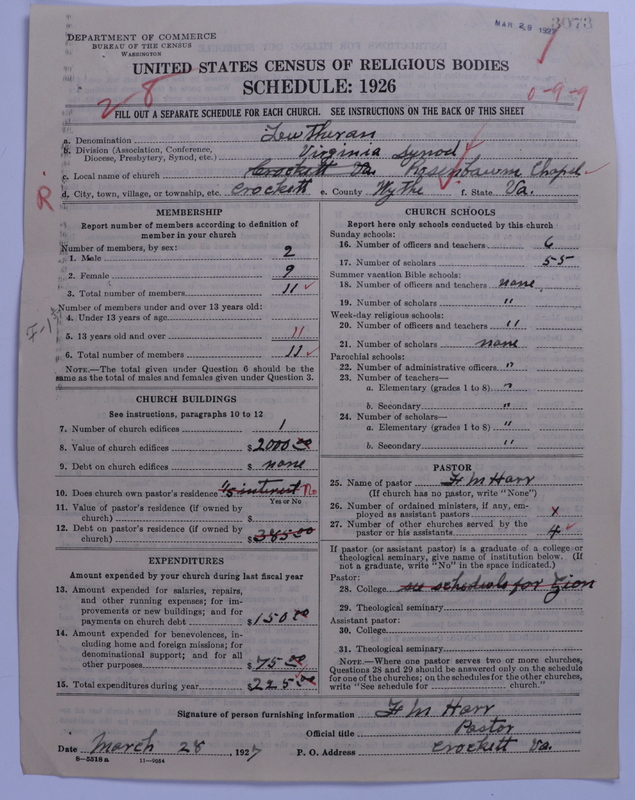 MAR 29 1927
3073
DEPARTMENT OF COMMERCE
BUREAU OF THE CENSUS
WASHINGTON
UNITED STATES CENSUS OF RELIGIOUS BODIES
SCHEDULE: 1926
28
0-9-9
FILL OUT A SEPARATE SCHEDULE FOR EACH CHURCH. SEE INSTRUCTIONS ON THE BACK OF THIS SHEET
a. Denomination Lewtheran
b. Division (Association, Conference, Diocese, Presbytery, Synod, etc.) Virginia Synod
c. Local name of church Crockett Va Rosenbawm Chapel
d. City, town, village, or township, etc. Crockett e. County Wythe f. State Va.
R
MEMBERSHIP
Report number of members according to definition of
member in your church
Number of members, by sex:
1. Male 2
2. Female 9
3. Total number of members 11
Number of members under and over 13 years old:
4. Under 13 years of age
5. 13 years old and over 11
6. Total number of members 11
NOTE.—The total given under Question 6 should be the
same as the total of males and females given under Question 3.
CHURCH BUILDINGS
See instructions, paragraphs 10 to 12
7. Number of church edifices 1
8. Value of church edifices $2000.00
9. Debt on church edifices $ none
10. Does church own pastor's residence 1/5 interest No
Yes or No
11. Value of pastor's residence (if owned by
church) $
12. Debt on pastor's residence (if owned by
church) $385.00
EXPENDITURES
Amount expended by your church during last fiscal year
13. Amount expended for salaries, repairs,
and other running expenses; for im-
provements or new buildings; and for
payments on church debt $150.00
14. Amount expended for benevolences, in-
cluding home and foreign missions; for
denominational support; and for all
other purposes $75.00
15. Total expenditures during year $225.00
CHURCH SCHOOLS
Report here only schools conducted by this church
Sunday schools:
16. Number of officers and teachers 6
17. Number of scholars 55
Summer vacation Bible schools:
18. Number of officers and teachers none
19. Number of scholars "
Week-day religious schools:
20. Number of officers and teachers "
21. Number of scholars none
Parochial schools:
22. Number of administrative officers "
23. Number of teachers—
a. Elementary (grades 1 to 8) "
b. Secondary "
24. Number of scholars—
a. Elementary (grades 1 to 8) "
b. Secondary "
PASTOR
25. Name of pastor F M Harr
(If church has no pastor, write "None")
26. Number of ordained ministers, if any, em-
ployed as assistant pastors x
27. Number of other churches served by the
pastor or his assistants 4
If pastor (or assistant pastor) is a graduate of a college or
theological seminary, give name of institution below. (If
not a graduate, write "No" in the space indicated.)
Pastor:
28. College see schedules for Zion
29. Theological seminary
Assistant pastor:
30. College
31. Theological seminary
NOTE.—Where one pastor serves two or more churches,
Questions 28 and 29 should be answered only on the schedule
for one of the churches; on the schedules for the other churches,
write "See schedule for church."
Signature of person furnishing information F M Harr
Official title Pastor
Date March 28, 1927 P. O. Address Crockett Va.
8—5518 a 11—9054